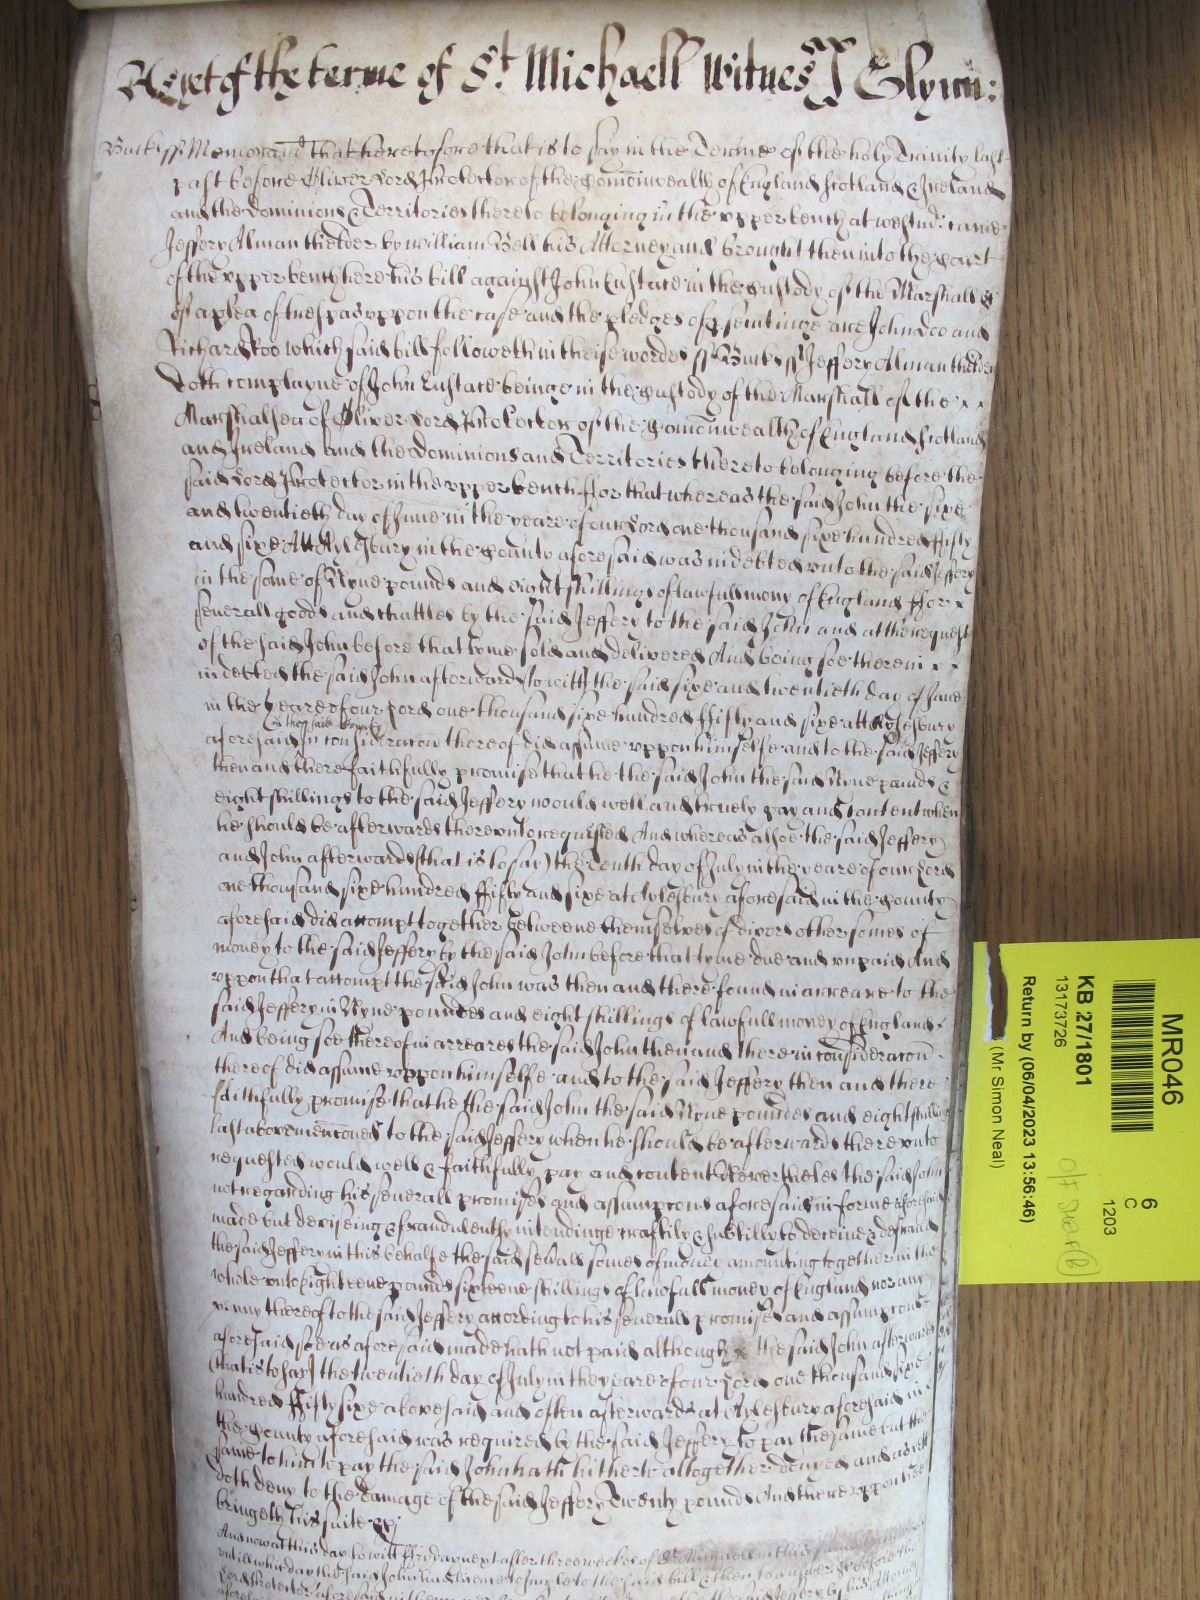 As yet of the terme of St. Michaell Witnes J Glynn:
Bucks ss Memorand that heretofore that is to say in the Terme of the holy Trinity last
past before Oliver Lord Protector of the Comonwealth of England Scotland & Ireland
and the Dominions & Territories thereto belonging in the upper bench at westmr: came
Jeffery Alman thelder by William Bell his Attorney and brought then into the Court
of the upper bench here his bill against John Eustace in the Custody of the Marshall &c
of a plea of trespas uppon the case and the pledges of psecutinge are John Doo and
Richard Roo which said bill followeth in theise wordes ss Bucks ss Jeffery Alman thelder
doth complayne of John Eustace beinge in the Custody of the Marshall of the x x
Marshalsea of Oliver Lord Protector of the Comonwealth of England Scotland
and Ireland and the Dominions and Territories thereto belonging before the
said Lord Protector in the upper bench ffor that whereas the said John the sixe
and twentieth day of June in the yeare of our Lord one thousand sixe hundred ffifty
and sixe Att Aylesbury in the County aforesaid was indebted unto the said Jeffery
in the some of Nyne pounds and eight shillings of lawfull mony of England ffor x
severall goods and chattles by the said Jeffery to the said John and at the request
of the said John before that tyme sold and delivered And being soe therein x x
indebted the said John afterwards (to witt) the said sixe and twentieth day of June
in the yeare of our Lord one thousand sixe hundred ffifty and sixe att Aylesbury
in the said County
aforesaid in consideracon thereof did assume uppon himselfe and to the said Jeffery
then and there faithfully promise that he the said John the said Nyne pounds &
eight shillings to the said Jeffery would well and truely pay and content when
he should be afterwards thereunto requested And whereas alsoe the said Jeffery
and John afterwards (that is to say) the Tenth day of July in the yeare of our Lord
one thousand sixe hundred ffifty and sixe at Aylesbury aforesaid in the County
aforesaid did accompt together betweene themselves of divers other somes of
money to the said Jeffery by the said John before that tyme due and unpaid And
uppon that accompt the said John was then and there found in arreare to the
said Jeffery in Nyne poundes and eight shillings of lawfull money of England x
And being soe thereof in arreares the said John then and there in consideracon
thereof did assume uppon himselfe and to the said Jeffery then and there
faithfully promise that he the said John the said Nyne poundes and eight shillings
last abovemenconed to the said Jeffery when he should be afterwards thereunto
requested would well & faithfully pay and content Neverthelesse the said John
not regarding his severall promises and assumpcons aforesaid in forme aforesaid
made but deviseing & fraudulently intendinge craftily & subtilly to deceive & defraud
the said Jeffery in this behalfe the said sevrall somes of money amounting together in the
whole unto Eighteene pounds sixteene shillings of lawfull money of England nor any
penny thereof to the said Jeffery according to his severall promises and assumpcons
aforesaid soe as aforesaid made hath not paid although x the said John afterwards
(that is to say) the twentieth day of July in the yeare of our Lord one thousand sixe
hundred ffifty sixe abovesaid and often afterwards at Aylesbury aforesaid in
the County aforesaid was required by the said Jeffery to pay the same but the
same to him to pay the said John hath hitherto altogether denyed and as yett
doth deny to the damage of the said Jeffery Twenty pounds And thereuppon hee
bringeth his suite &c
And now at this day to witt ffryday next after three weekes of St Michaell in this same terme
untill which day the said John had licence to imple to the said bill & then to answere &c before the
Lord Protector aforesaid in the upper the said Jeffery by his Attorney
MR046
KB 27/1801
13173726
Return by (06/04/2023 13:56:46)
(Mr Simon Neal)
6
C
1203